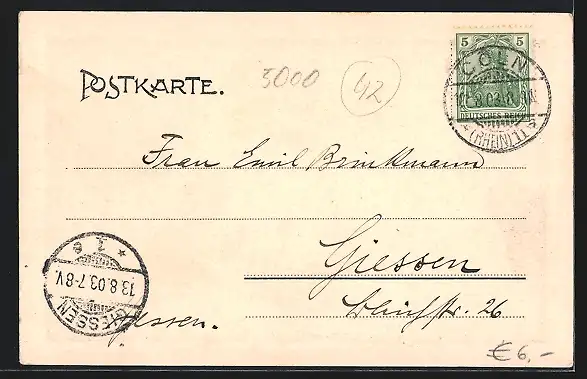 POSTKARTE.
3000
42
5 5
DEUTSCHES REICH
CÖLN
8.03.8
(RHEIN) 1
Frau Emil Brinkmann
Giessen
26
Hessen.
GIESSEN
13.8.03.7-8V.
* 1 e
€ 6,-